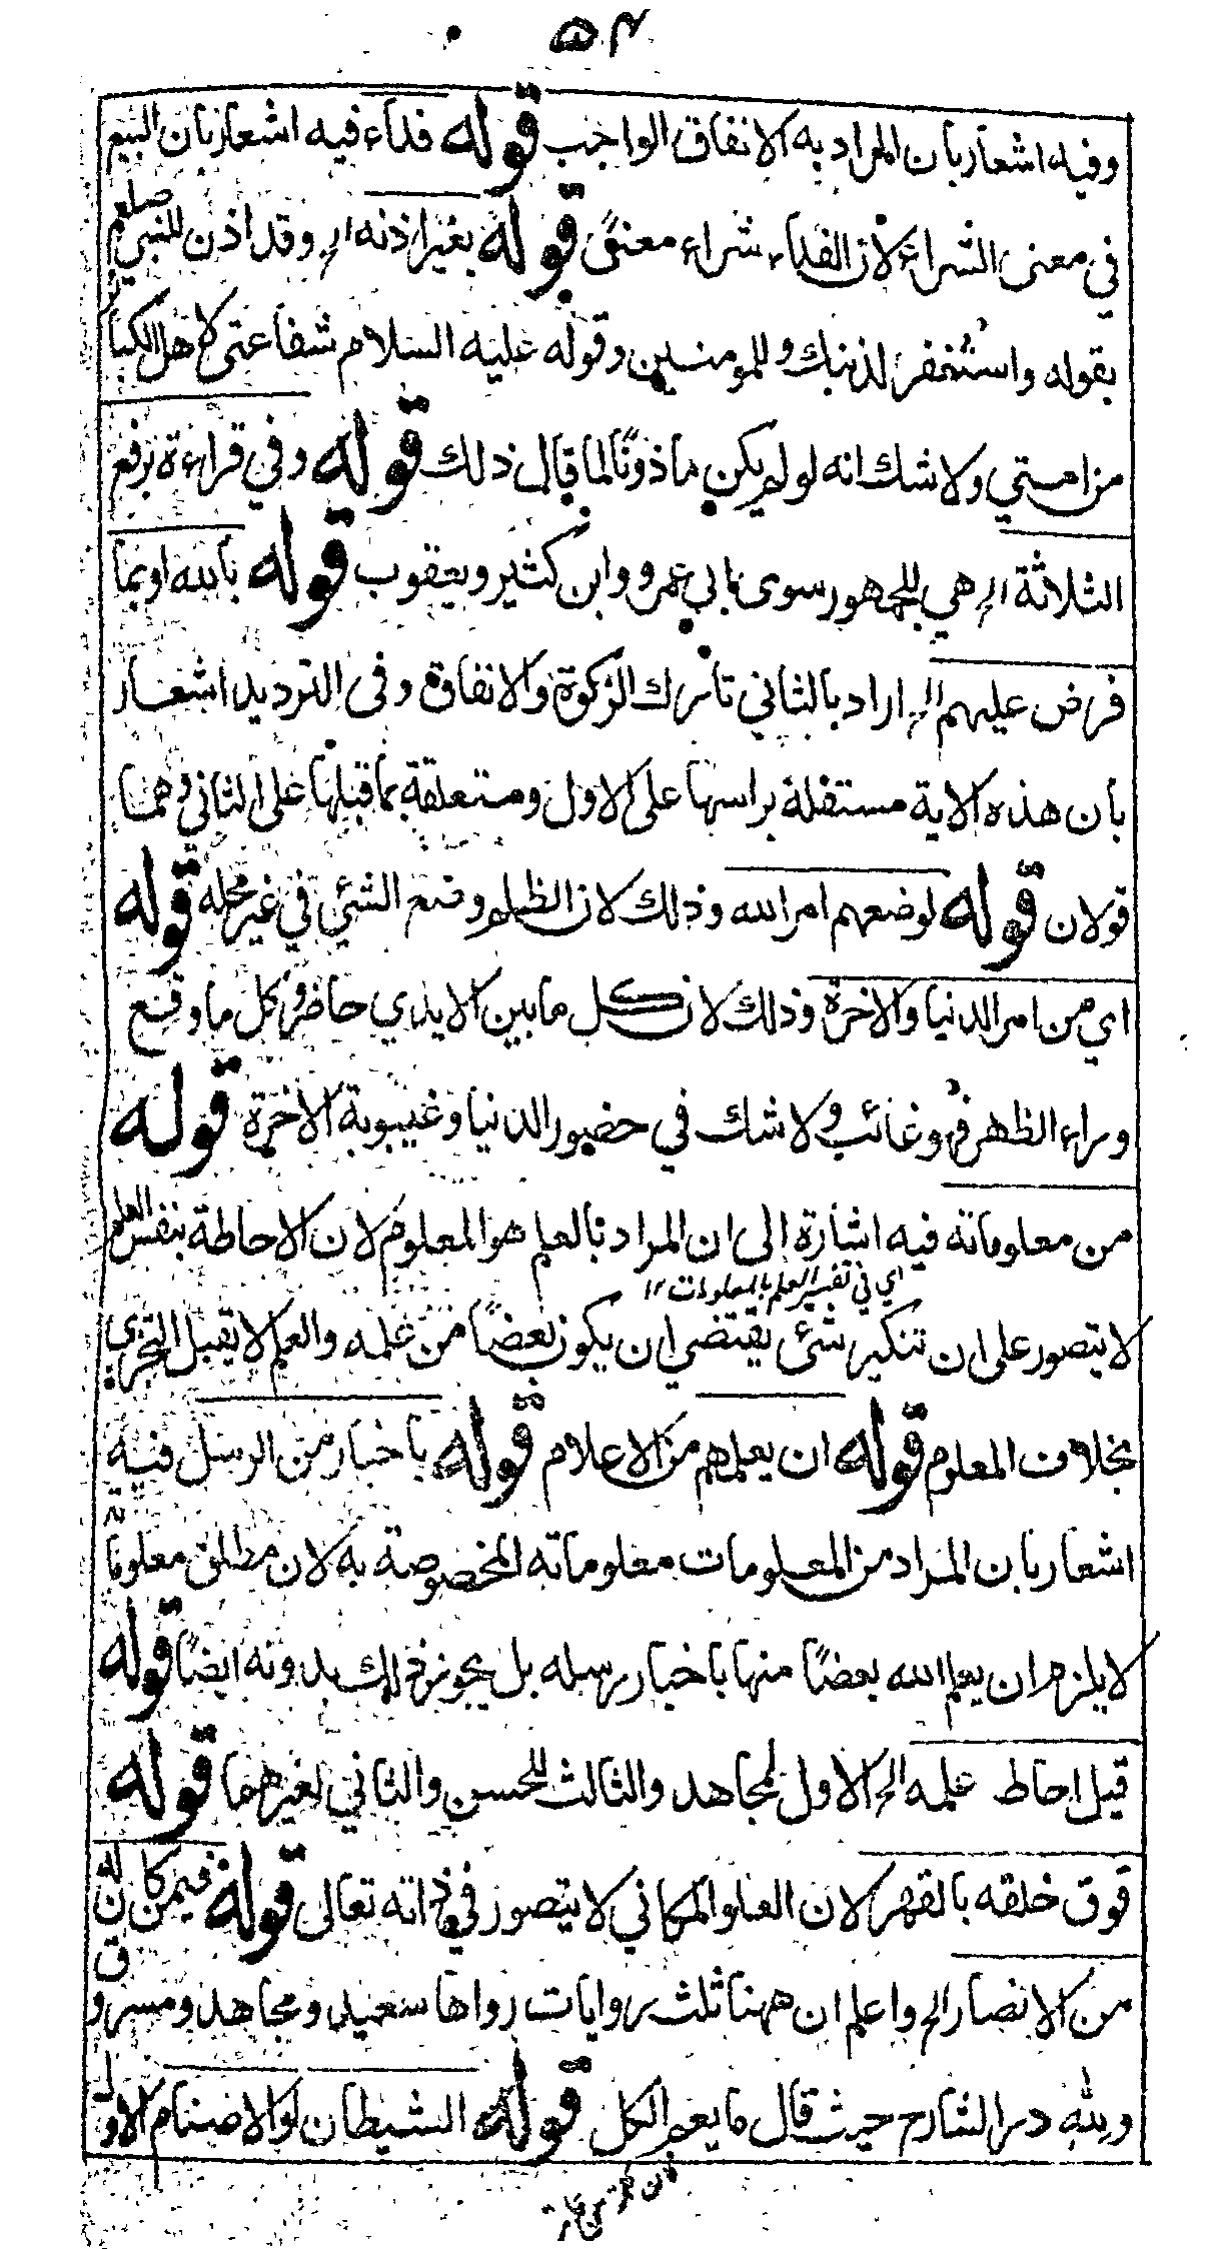 ۵۴
وفيه اشعار بان المراد به الانفاق الواجب قوله فداء فيه اشعار بان البيع
في معنى الشراء لان الفداء شراء معنىً قوله بغير اذنه الخ وقد اذن للنبي صلعم
بقوله واستغفر لذنبك وللمومنين وقوله عليه السلام شفاعتى لاهل الكبائر
من امتي ولا شك انه لو لم يكن ماذونًا لما قال ذلك قوله وفي قراءة برفع
الثلاثة الخ هي للجمهور سوى ابي عمرو وابن كثير ويعقوب قوله بالله او بما
فرض عليهم الخ اراد بالثاني تارك الزكوة والانفاق وفى الترديد اشعار
بان هذه الاية مستقلة براسها على الاول ومتعلقة بما قبلها على الثاني وهما
قولان قوله لوضعهم امر الله وذلك لان الظلم وضع الشئ في غير محله قوله
اي من امر الدنيا والاخرة وذلك لان كل ما بين الايدي حاضر وكل ما وقع
وراء الظهر فهو غائب ولا شك في حضور الدنيا وغيبوبة الاخرة قوله
من معلوماته فيه اشارة الى ان المراد بالعلم هو المعلوم لان الاحاطة بنفس العلم
اي في تفسير العلم بالمعلومات ١٢
لا يتصور على ان تنكير شئ يقتضي ان يكون بعضًا من علمه والعلم لا يقبل التجزي
بخلاف المعلوم قوله ان يعلمهم من الاعلام قوله باخبار من الرسل فيه
اشعار بان المراد من المعلومات معلوماته المخصوصة به لان مطلق معلوماته
لا يلزم ان يعلم الله بعضًا منها باخبار رسله بل يجوز ذلك بدونه ايضًا قوله
قيل احاط علمه الخ الاول لمجاهد والثالث للحسن والثاني لغيرهما قوله
فوق خلقه بالقهر لان العلو المكاني لا يتصور في ذاته تعالى قوله فيمن كان له
من الانصار الخ واعلم ان ههنا ثلث روايات رواها سعيد ومجاهد ومسروق
ولله در الشارح حيث قال ما يعم الكل قوله الشيطان او الاصنام الاول